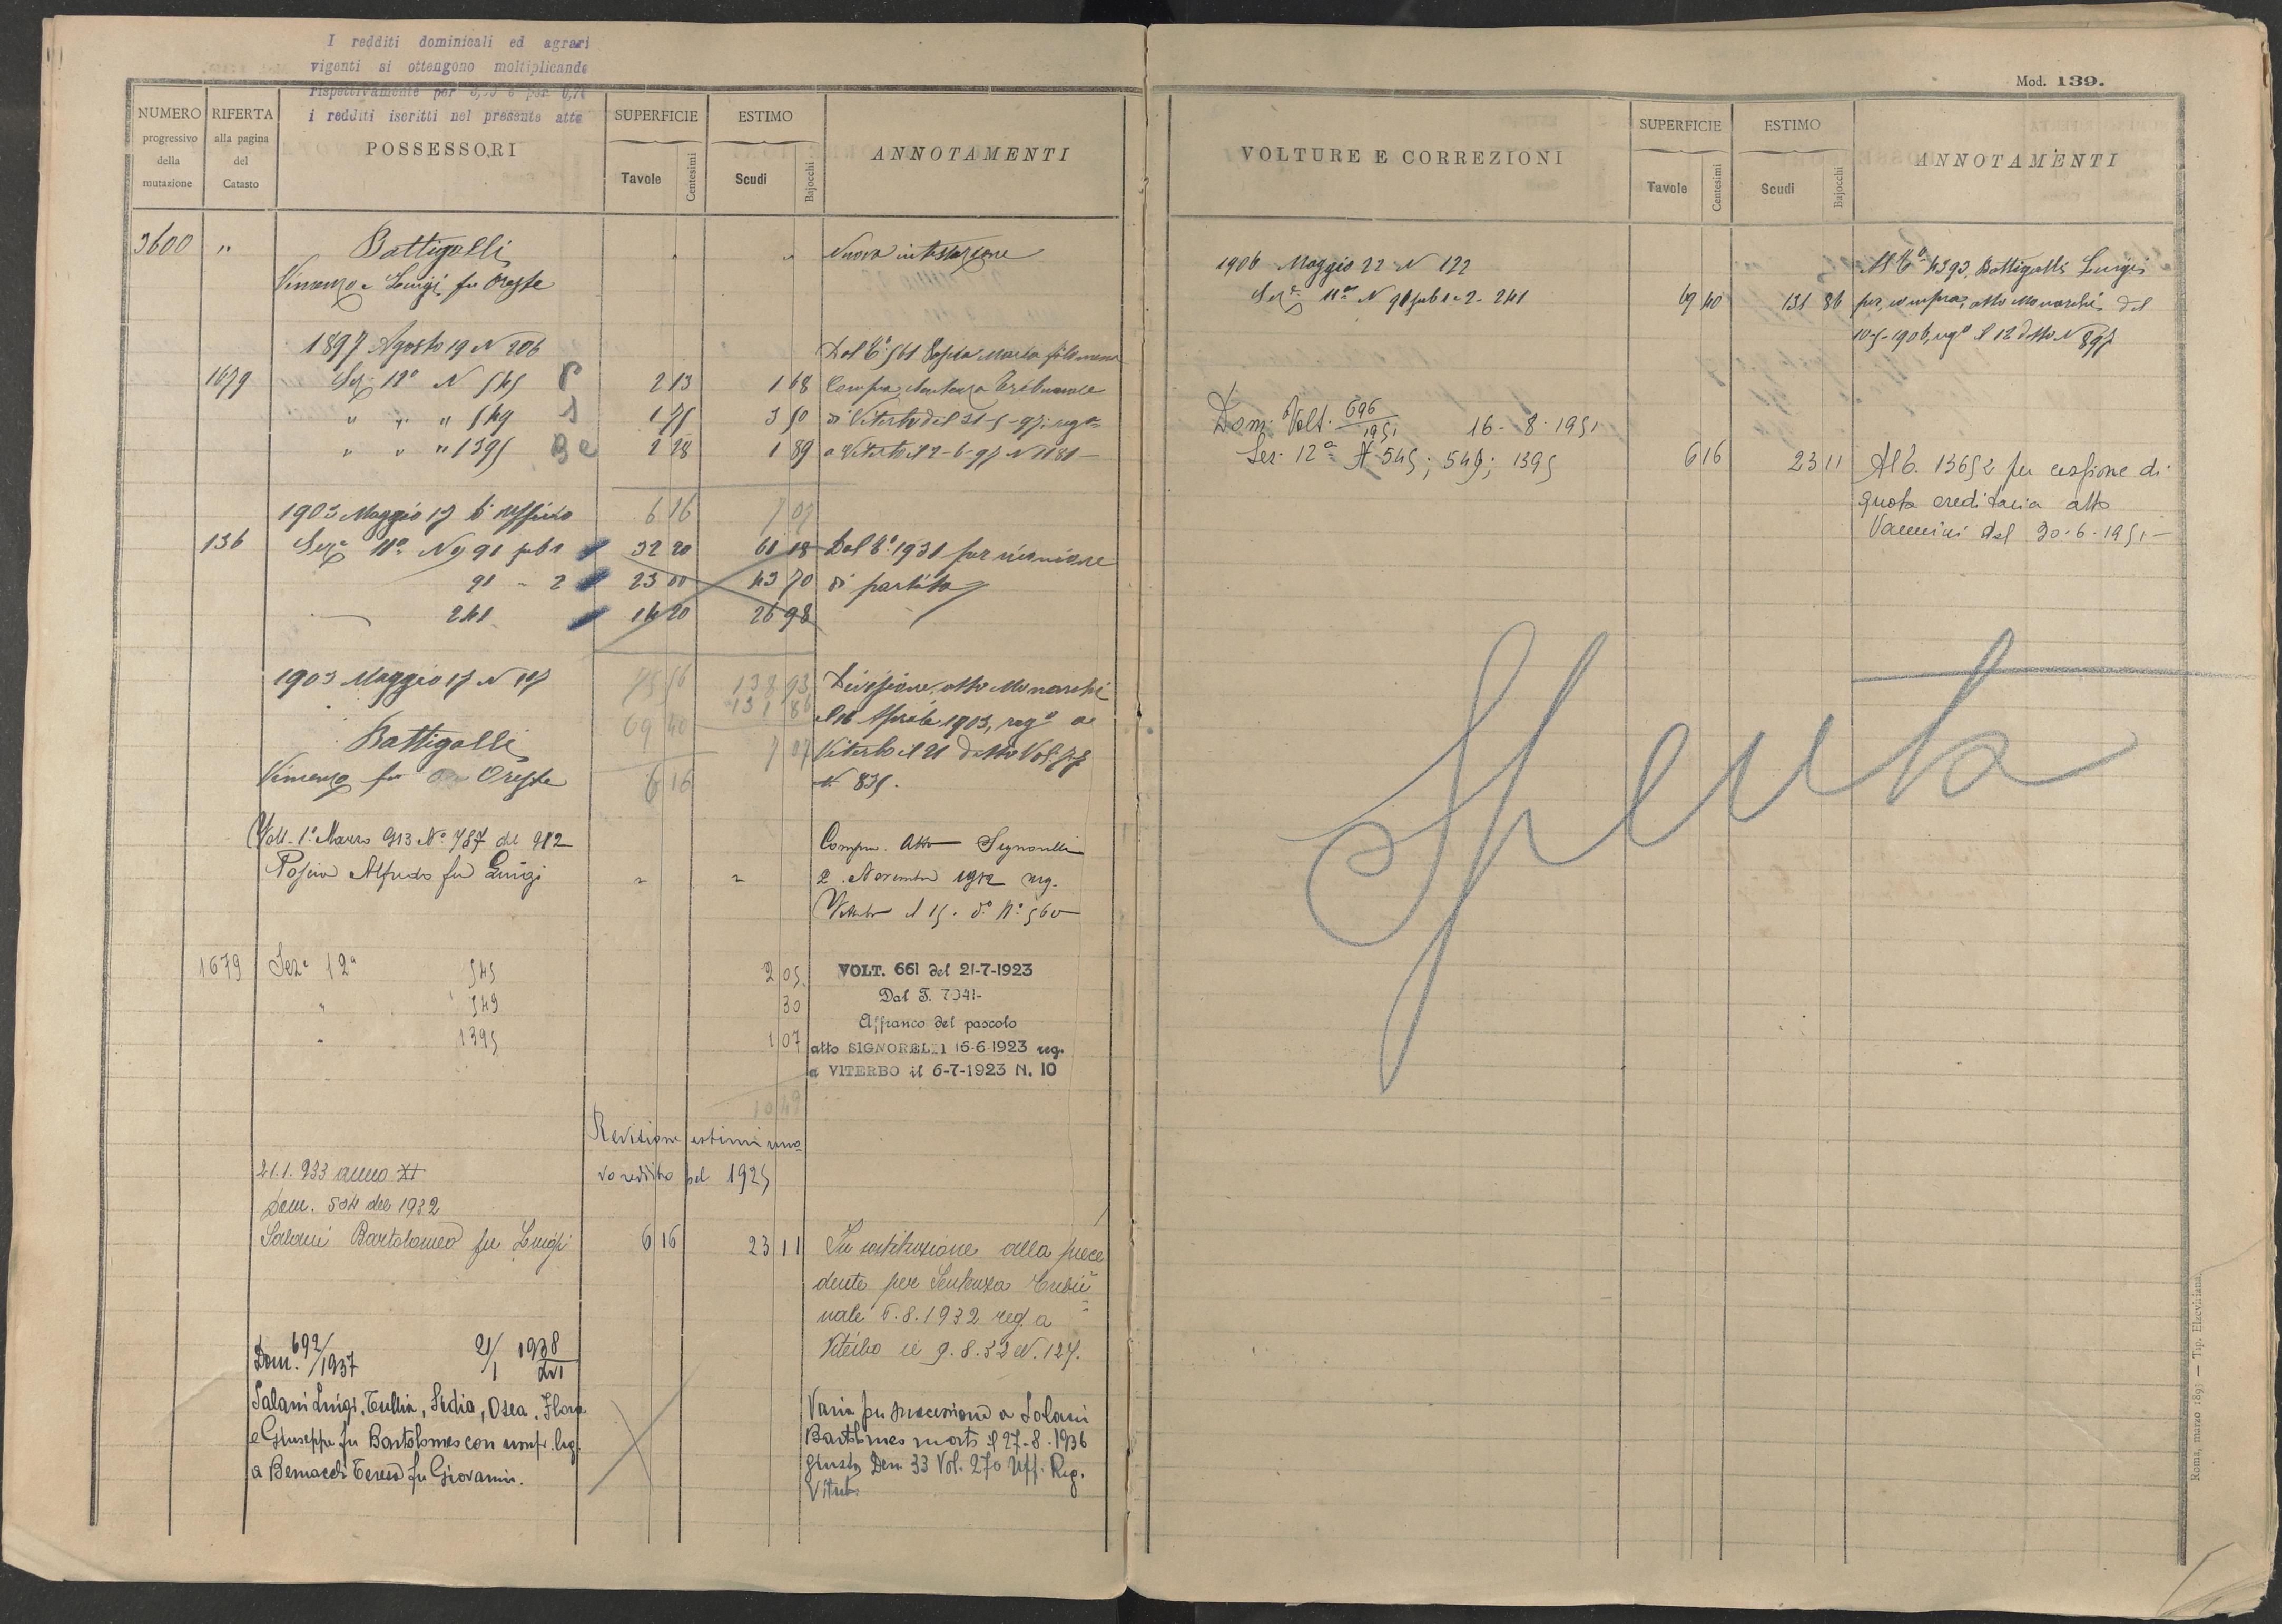 I redditi dominicali ed agrari
vigenti si ottengono moltiplicando
rispettivamente per
i redditi iscritti nel presente atto
NUMERO progressivo della mutazione
RIFERTA alla pagina del Catasto
POSSESSORI
SUPERFICIE
Tavole Centesimi
ESTIMO
Scudi Bajocchi
ANNOTAMENTI
3600 " Battigalli " " Nuova intestazione
Vincenzo e Luigi fu Oreste
1897 Agosto 19 N 206 Dal T.° 561 Maria filomena
1679 Sez. 12ª N 545 2 13 1 68 Compra, sentenza Tribunale
" " " 549 1 75 3 50 di Viterbo del 21-5-97, reg.
" " " 1395 2 28 1 89 a Viterbo il 2-6-97 N 1181
1903 Maggio 17 6 16 7 07
136 Sez.e 11ª N 91 sub 1 32 20 61 18 Dal T.° 1931 per riunione
91 " 2 23 00 43 70 di partita
241 14 20 26 98
1903 Maggio 17 N 127 75 56 138 93 Divisione, atto Monarchi
69 40 131 86 del 16 Aprile 1903, reg° a
Battigalli 7 07 Viterbo il 21 detto Vol. 77
Vincenzo fu Oreste 6 16 N 835.
Volt. 1° Marzo 913 N° 787 del 912 Compra. Atto Signorelli
Alfredo fu Luigi " " 2 Novembre 1912 reg.
Viterbo il 15. d° N° 560
1679 Sez.e 12ª 545 2 05
" 549 30
" 1395 1 07
VOLT. 661 del 21-7-1923
Dal T. 7041-
Affranco del pascolo
atto SIGNORELLI 16-6-1923 reg.
a VITERBO il 6-7-1923 N. 10
10 49
Revisione estimi nuo
vo reddito pel 1925
21.1.933 anno XI
Dom. 504 del 1932
Salani Bartolomeo fu Luigi 6 16 23 11 In sostituzione alla prece
dente per Sentenza Tribu
nale 5.8.1932 reg. a
Viterbo il 9.8.32 N. 127.
Dom. 692/1937 21/1 1938 XVI
Salani Luigi, Tullia, Lidia, Osea, Flora
e Giuseppe fu Bartolomeo con usufr. leg.
a Bernacchi Teresa fu Giovanni.
Varia per successione a Salani
Bartolomeo morto il 27-8-1936
giusta Den. 33 Vol. 270 Uff. Reg.
Viterbo
Mod. 139.
VOLTURE E CORREZIONI
SUPERFICIE
Tavole Centesimi
ESTIMO
Scudi Bajocchi
ANNOTAMENTI
1906 Maggio 22 N 122 Al T.° 4393, Battigalli Luigi
Sez.e 11ª N 91 sub 1 e 2 - 241 69 40 131 86 per compra, atto Monarchi del
10-5-1906, reg° il 12 detto N 897
Dom. Volt. 696/1951 16-8-1951
Sez. 12ª N. 545; 549; 1395 6 16 23 11 Al T. 13652 per cessione di
quota ereditaria atto
Vannini del 30-6-1951
Spenta
Roma, marzo 1893 — Tip. Elzeviriana.